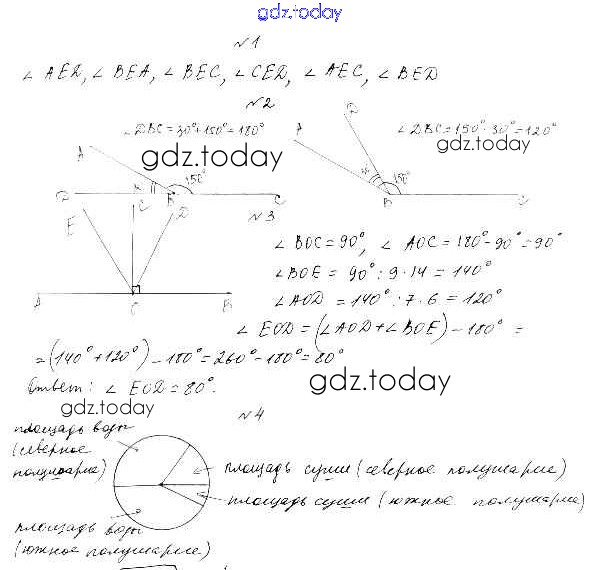 gdz.today
№1
∠AED, ∠BEA, ∠BEC, ∠CED, ∠AEC, ∠BED
№2
∠DBC=30°+150°=180°
∠DBC=150°-30°=120°
gdz.today
gdz.today
A
D
B
150°
C
A
D
B
150°
C
№3
E
C
D
A
C
B
∠BOC=90°, ∠AOC=180°-90°=90°
∠BOE=90°:9·14=140°
∠AOD=140°:7·6=120°
∠EOD=(∠AOD+∠BOE)-180°=
=(140°+120°)-180°=260°-180°=80°
Ответ: ∠EOD=80°.
gdz.today
gdz.today
№4
площадь воды
(северное
полушарие)
площадь суши (северное полушарие)
площадь суши (южное полушарие)
площадь воды
(южное полушарие)